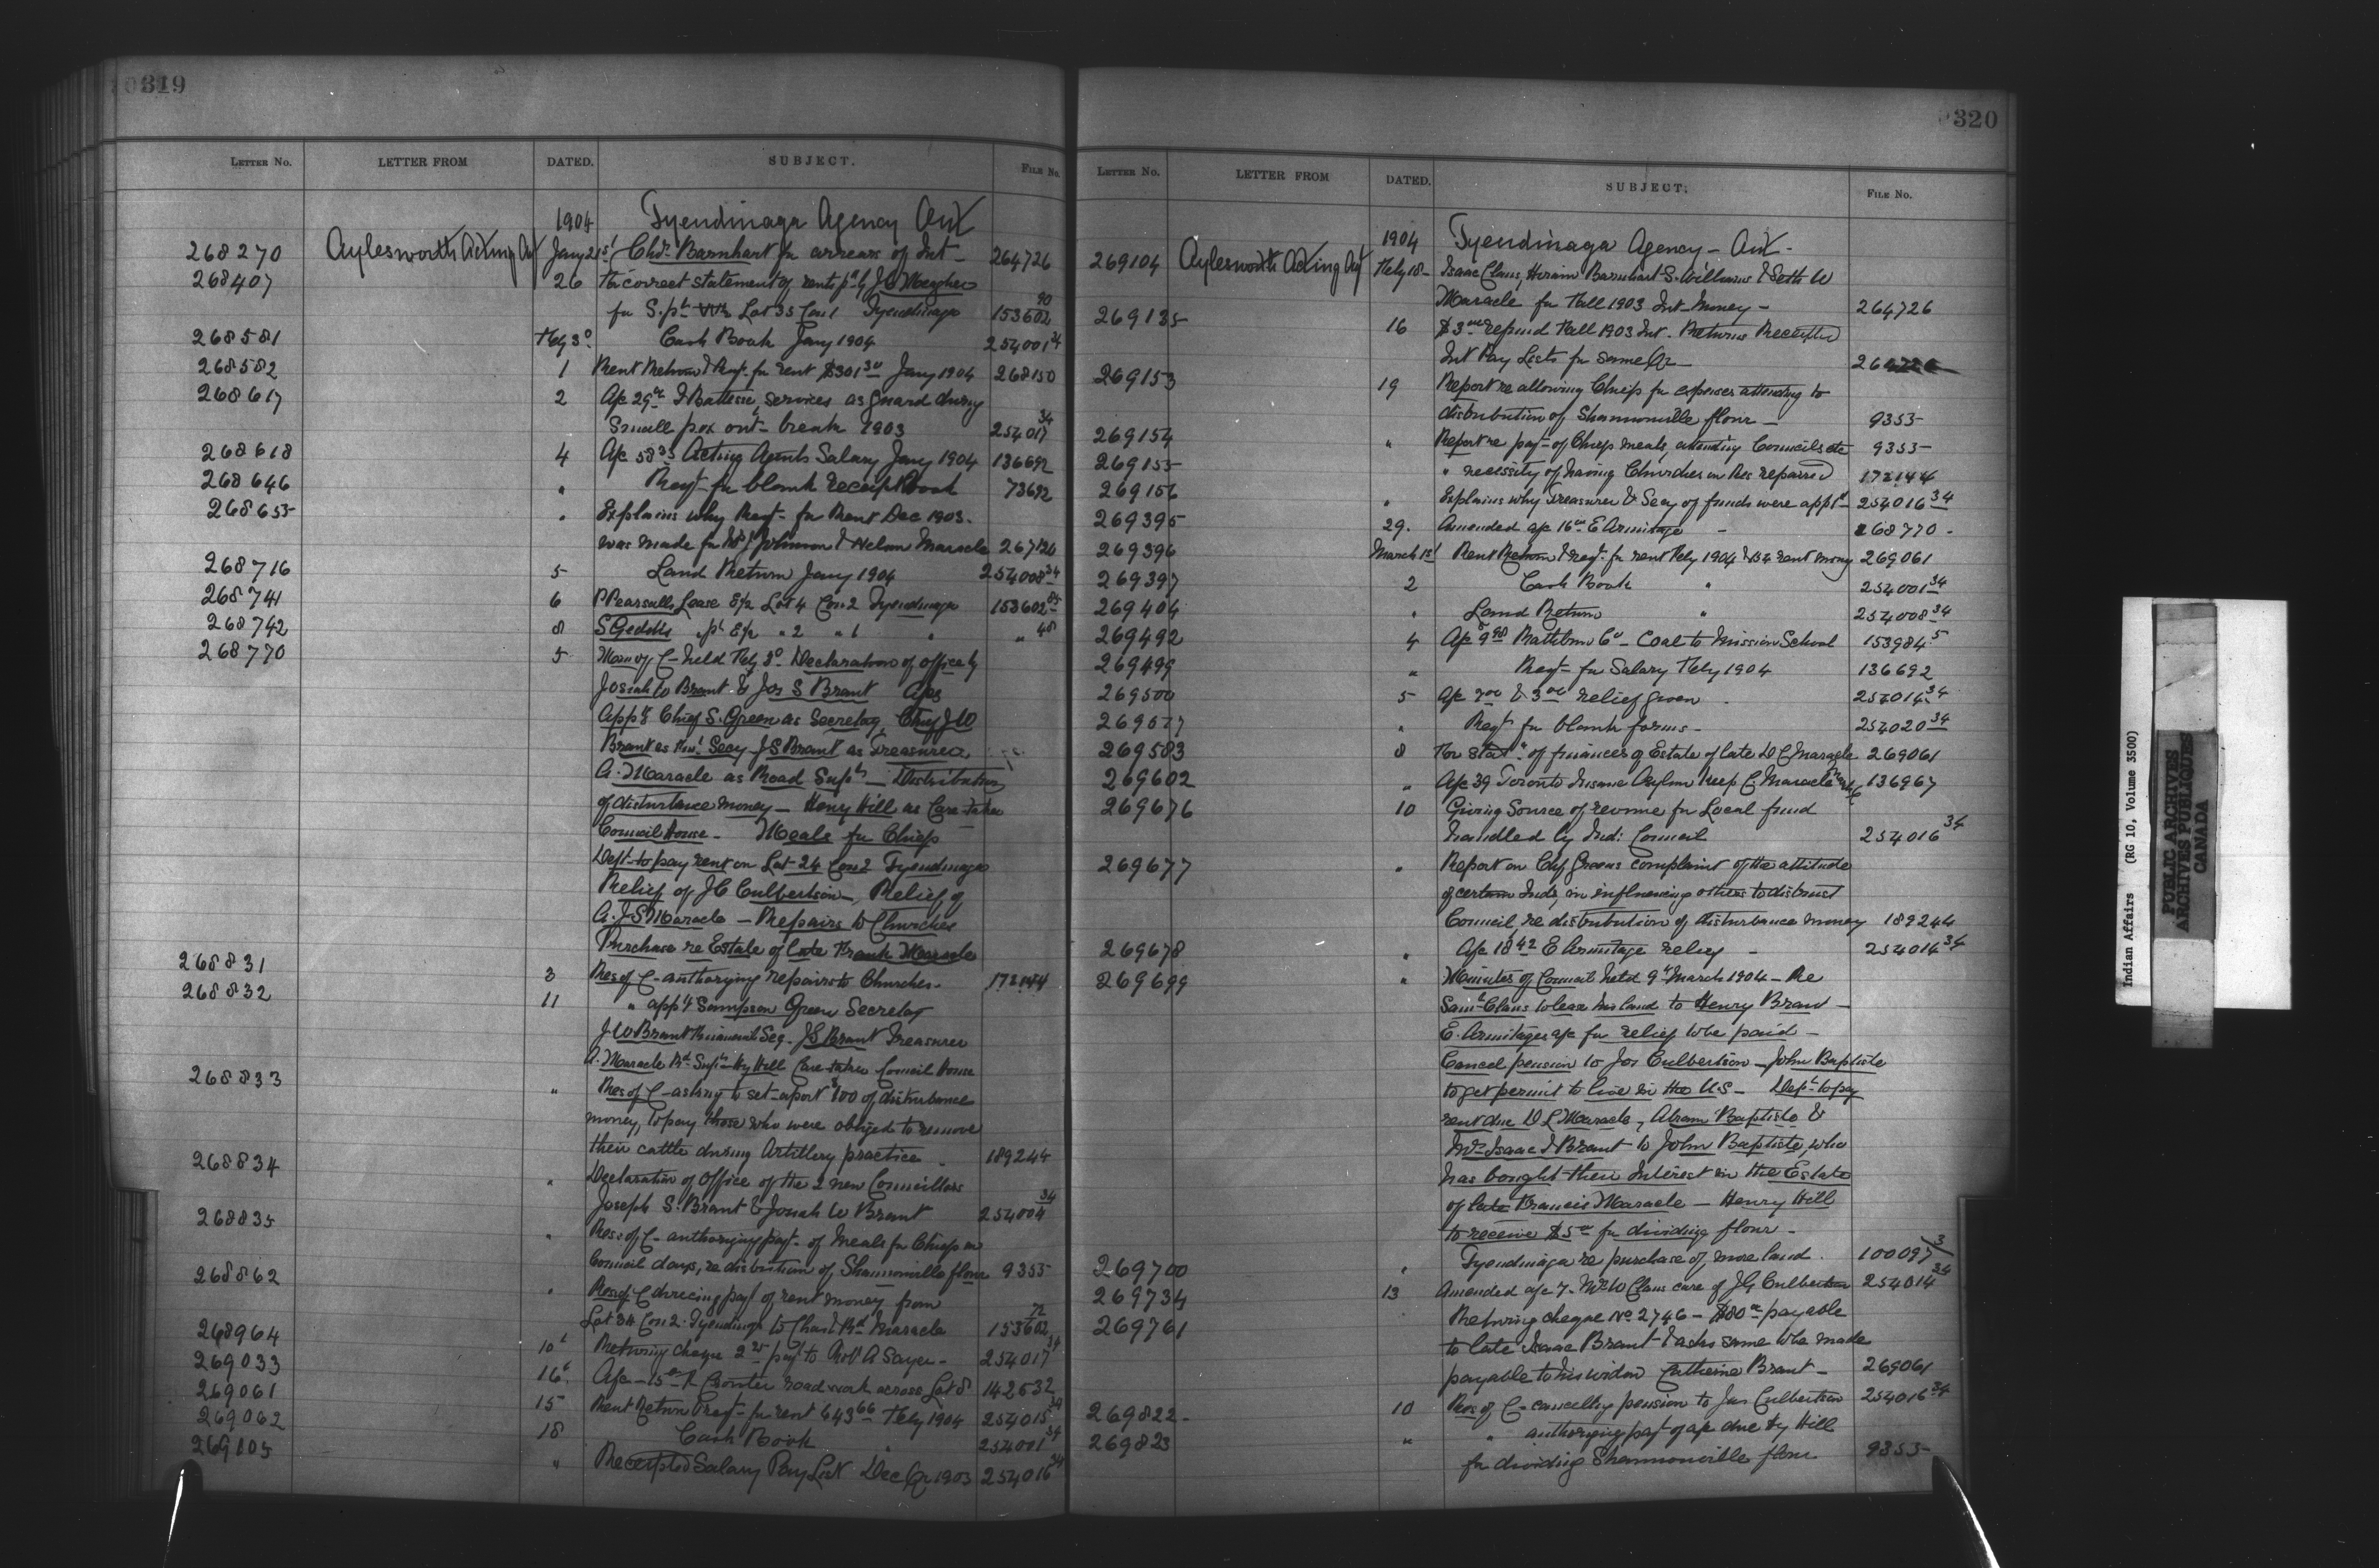 0319
LETTER NO. LETTER FROM DATED. SUBJECT. FILE NO.
1904 Tyendinaga Agency Ont
268270 Aylesworth Acting Agt Jany 21st Barnhart for arrears of Int 264726
268407 26 For correct statement of rents pd by J Meagher
for S. pt Lot 35 Con 1 Tyendinaga 153602 90
268581 Feby 3d Cash Book Jany 1904 254001 34
268582 1 Rent Return & Reqt. for rent $301 30 Jany 1904 268150
268617 2 A/c 29 00 J Battese, services as guard during
Small pox out-break 1903 254017 34
268618 4 A/c 58 33 Acting Agents Salary Jany 1904 136692
268646 " Reqt for blank receipt Book 73692
268655 " Explains why Reqt for Rent Dec 1903.
was made for Johnson & Nelson Maracle 267126
268716 5 Land Return Jany 1904 254008 34
268741 6 P Pearsalls Lease E½ Lot 4 Con 2 Tyendinaga 153602 84
268742 8 S Geddis pt E½ " 2 " 1 " " 48
268770 5 Min of C- held Feby 3d Declaration of Office by
Josiah W Brant & Jos S Brant A/cs
App'g Chief S. Green as Secretary, Chief J W
Brant as Finl Secy J S Brant as Treasurer,
A. Maracle as Road Supt - Distribution
of disturbance money - Henry Hill as Care-taker
Council House - Meals for Chiefs
Dept to pay rent on Lot 24 Con 2 Tyendinaga
Relief of J C Culbertson -, Relief of
A. J S Maracle - Repairs to Churches
Purchase re Estate of late Frank Maracle
268831 3 Res of C- authorizing repairs to Churches - 172144
268832 11 " app'g Sampson Green Secretary
J W Brant Financial Sec. J S Brant Treasurer
A. Maracle Rd Supt Hy Hill Care-taker Council House
268833 " Res of C- asking to set-apart $100 of disturbance
money, to pay those who were obliged to remove
their cattle during Artillery practice - 189244
268834 " Declaration of Office of the 2 new Councillors
Joseph S. Brant & Josiah W Brant 254004 34
268835 " Res: of C- authorizing pay't of Meals for Chiefs on
Council days, re distribution of Shannonville flour 9355
268862 " Res of C directing payt of rent money from
Lot 24 Con 2. Tyendinaga to Chas & Rd Maracle 153602 72
268964 10t Returning cheque 2 25 pay't to Robt A Sayer - 254017 34
269033 16t A/c - 15 00 R Crouter road work across Lot 8 142532
269061 15 Rent Return & Reqt - for rent 643 66 Feby 1904 254015 34
269062 18 Cash Book " 254001 34
269105 " Receipted Salary Pay List Dec Qr 1903 254016 34
0320
LETTER NO. LETTER FROM DATED. SUBJECT. FILE NO.
1904 Tyendinaga Agency - Ont -
269104 Aylesworth Acting Agt Feby 18 - Isaac Claus, Hiram Barnhart S. Williams & Seth W
Maracle for Fall 1903 Int Money - 264726
269135 16 $3 00 refund Fall 1903 Int. Returns Receipted
Int Pay Lists for same Qr
269153 19 Report re allowing Chiefs for expenses attending to
distribution of Shannonville flour - 9355
269154 " Report re pay't of Chiefs meals, attending Councils etc 9355 -
269155 " necessity of having Churches on Res repaired 172144
269156 " Explains why Treasurer & Secy of funds were appt'd 254016 34
269395 29. Amended a/c 16 00 E Armitage - 268770 -
269396 March 1st Rent Return & reqt. for rent Feby 1904 & rent money 269061
269397 2 Cash Book " 254001 34
269404 " Land Return " 254008 34
269492 4 A/c 9 98 Rathbun Co - Coal to Mission School 153984 5
269499 " Reqt - for Salary Feby 1904 136692
269500 5 A/c & 3 00 relief given 254014 34
" Reqt for blank forms - 254020 34
269583 8 For stat't of finances of Estate of late D C Maracle 269061
269602 " A/c 39 Toronto Insane Asylum keep C Maracle 136967
269676 10 Giving Source of revenue for Local fund
handled by Ind: Council 254016 34
269677 " Report on Chf Greens complaint of the attitude
of certain Inds, in influencing others to distrust
Council, re distribution of disturbance money 189244
269678 " A/c 18 42 E Armitage relief - 254014 34
269699 " Minutes of Council held 9th March 1904 - Re
Saml Claus to lease his land to Henry Brant -
E. Armitages a/c for relief to be paid -
Cancel pension to Jos Culbertson - John Baptiste
to get permit to live in the U S - Dept to pay
rent due D L Maracle, Abram Baptiste &
Mrs Isaac J Brant to John Baptiste, who
has bought their Interest in the Estate
of late Francis Maracle - Henry Hill
to receive $5 00 for dividing flour -
269700 " Tyendinaga re purchase of more land. 100097/3
269734 13 Amended a/c 7. Mrs W Claus care of J G Culbertson 254014 34
269761 Returning cheque No 2746 - $80 00 payable
to late Isaac Brant & asks same to be made
payable to his widow Catherine Brant - 269061
269822 - 10 Res of C- cancelling pension to Jos Culbertson 254016 34
269823 " " authorizing pay't of a/c due Hy Hill
for dividing Shannonville flour 9355
Indian Affairs (RG 10, Volume 3500)
PUBLIC ARCHIVES
ARCHIVES PUBLIQUES
CANADA